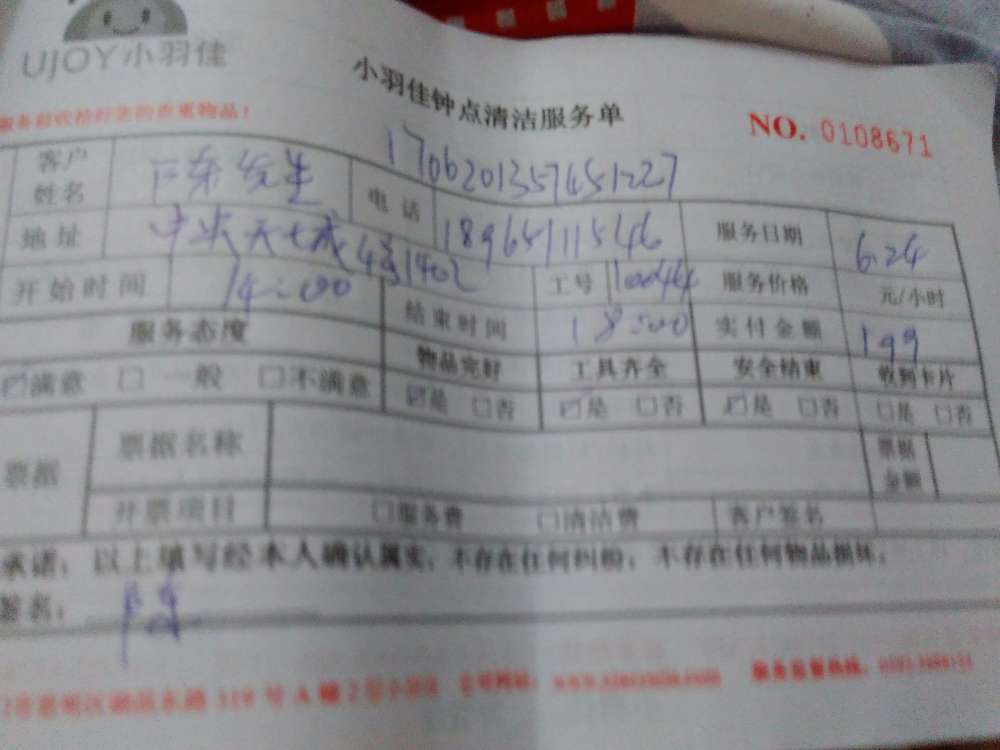 UJOY小羽佳
小羽佳钟点清洁服务单
NO. 0108671
客户姓名 陈先生
1706201357451227
地址 中央天成
电话 18965111546 服务日期 6.24
开始时间 14:00 结束时间 18:00
工号 服务价格 元/小时
实付金额 199
服务态度 物品完好 工具齐全 安全结束 收到卡片
☑满意 □一般 □不满意 ☑是 □否 ☑是 □否 ☑是 □否 □是 □否
票据 票据名称 票据金额
开票项目 □服务费 □清洁费 客户签名
承诺：以上填写经本人确认属实，不存在任何纠纷，不存在任何物品损坏。
签名：陈
319号A幢2层
服务监督热线：